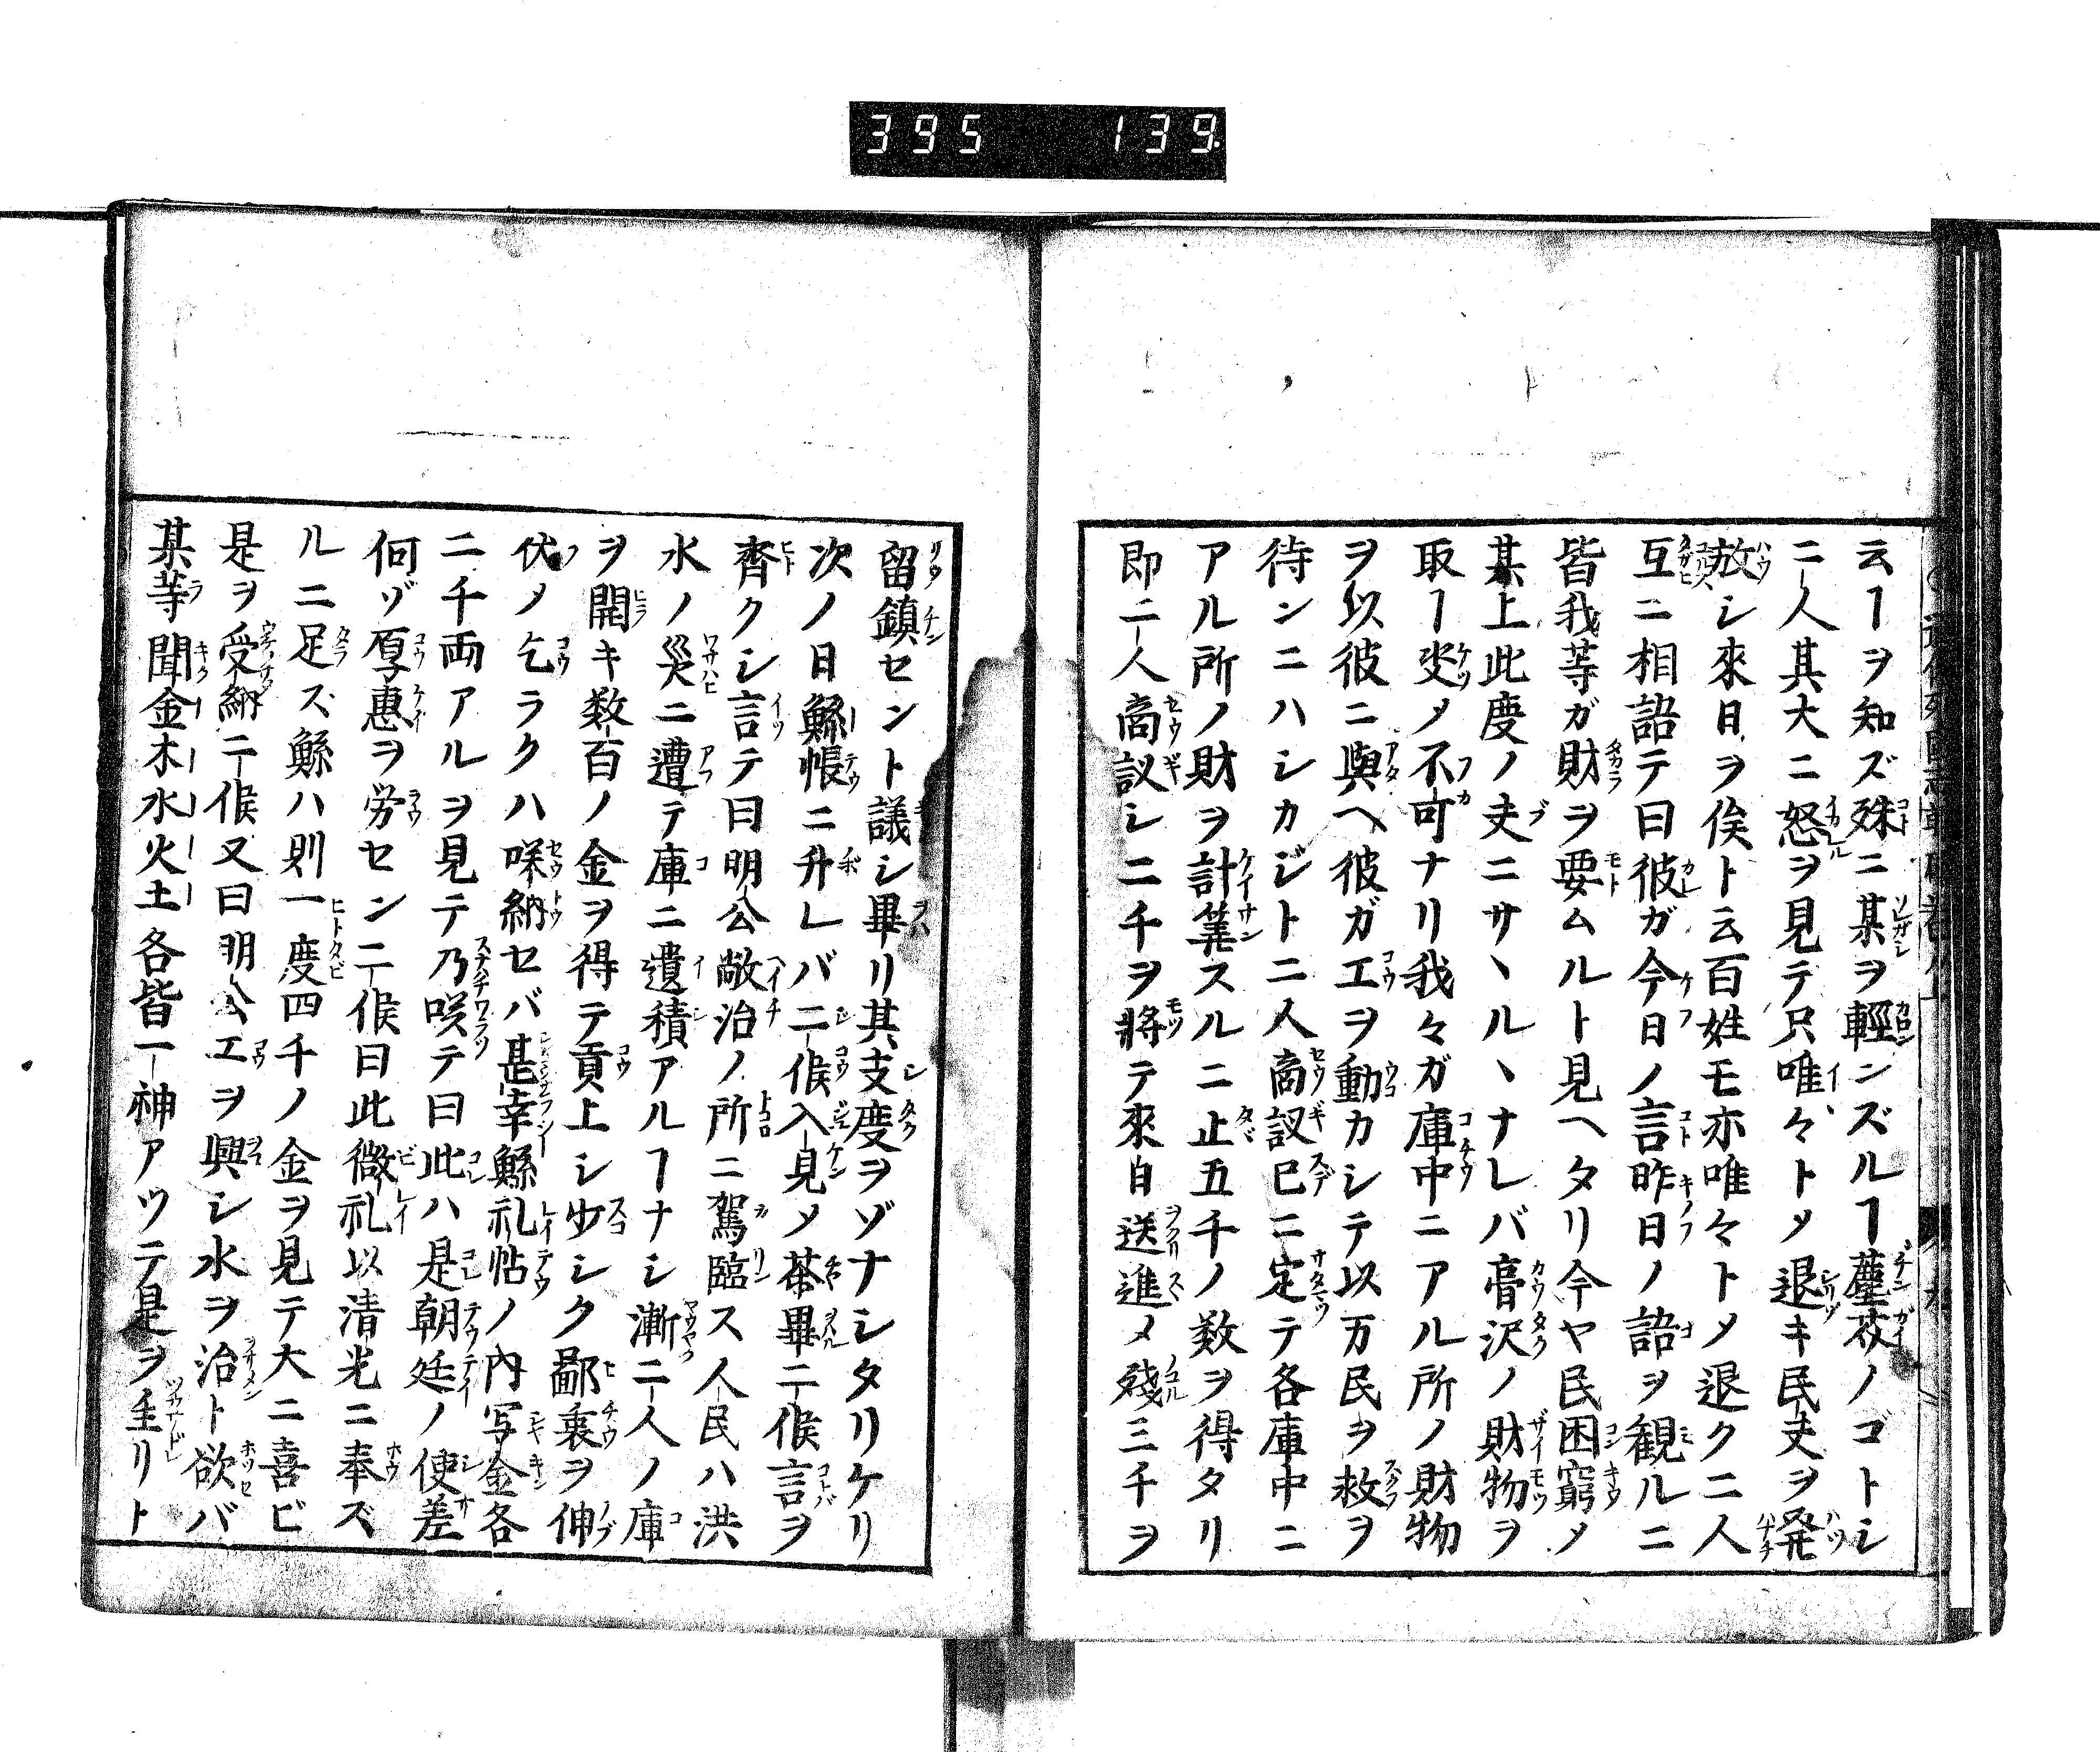 395 139
云ヿヲ知ズ殊ニ某ヲ輕ンズルヿ塵芥ノゴトシ
二人其大ニ怒ヲ見テ只唯々トメ退キ民丈ヲ発
放シ來日ヲ俟ト云百姓モ亦唯々トメ退ク二人
互ニ相語テ曰彼ガ今日ノ言昨日ノ語ヲ観ルニ
皆我等ガ財ヲ要ムルト見ヘタリ今ヤ民困窮メ
某上此度ノ夫ニサヽルヽナレバ膏沢ノ財物ヲ
取ヿ决メ不可ナリ我々ガ庫中ニアル所ノ財物
ヲ以彼ニ與ヘ彼ガ工ヲ動カシテ以万民ヲ救ヲ
待ンニハシカジト二人商議已ニ定テ各庫中ニ
アル所ノ財ヲ計筭スルニ止五千ノ数ヲ得タリ
即二人商議シ二千ヲ將テ來自送進メ殘三千ヲ
留鎮セント議シ畢リ其支度ヲゾナシタリケリ
次ノ日鯀帳ニ升レバ二候入見メ茶畢二候言ヲ
齊クシ言テ曰明公敝治ノ所ニ駕臨ス人民ハ洪
水ノ災ニ遭テ庫ニ遺積アルヿナシ漸二人ノ庫
ヲ開キ数百ノ金ヲ得テ貢上シ少シク鄙衷ヲ伸
伏メ乞ラクハ咲納セバ甚幸鯀礼帖ノ内写金各
二千両アルヲ見テ乃咲テ曰此ハ是朝廷ノ使差
何ゾ厚惠ヲ労セン二候曰此微礼以清光ニ奉ズ
ルニ足ズ鯀ハ則一度四千ノ金ヲ見テ大ニ喜ビ
是ヲ受納二候又曰明公工ヲ興シ水ヲ治ト欲バ
某等聞金木水火土各皆一神アツテ是ヲ主リト